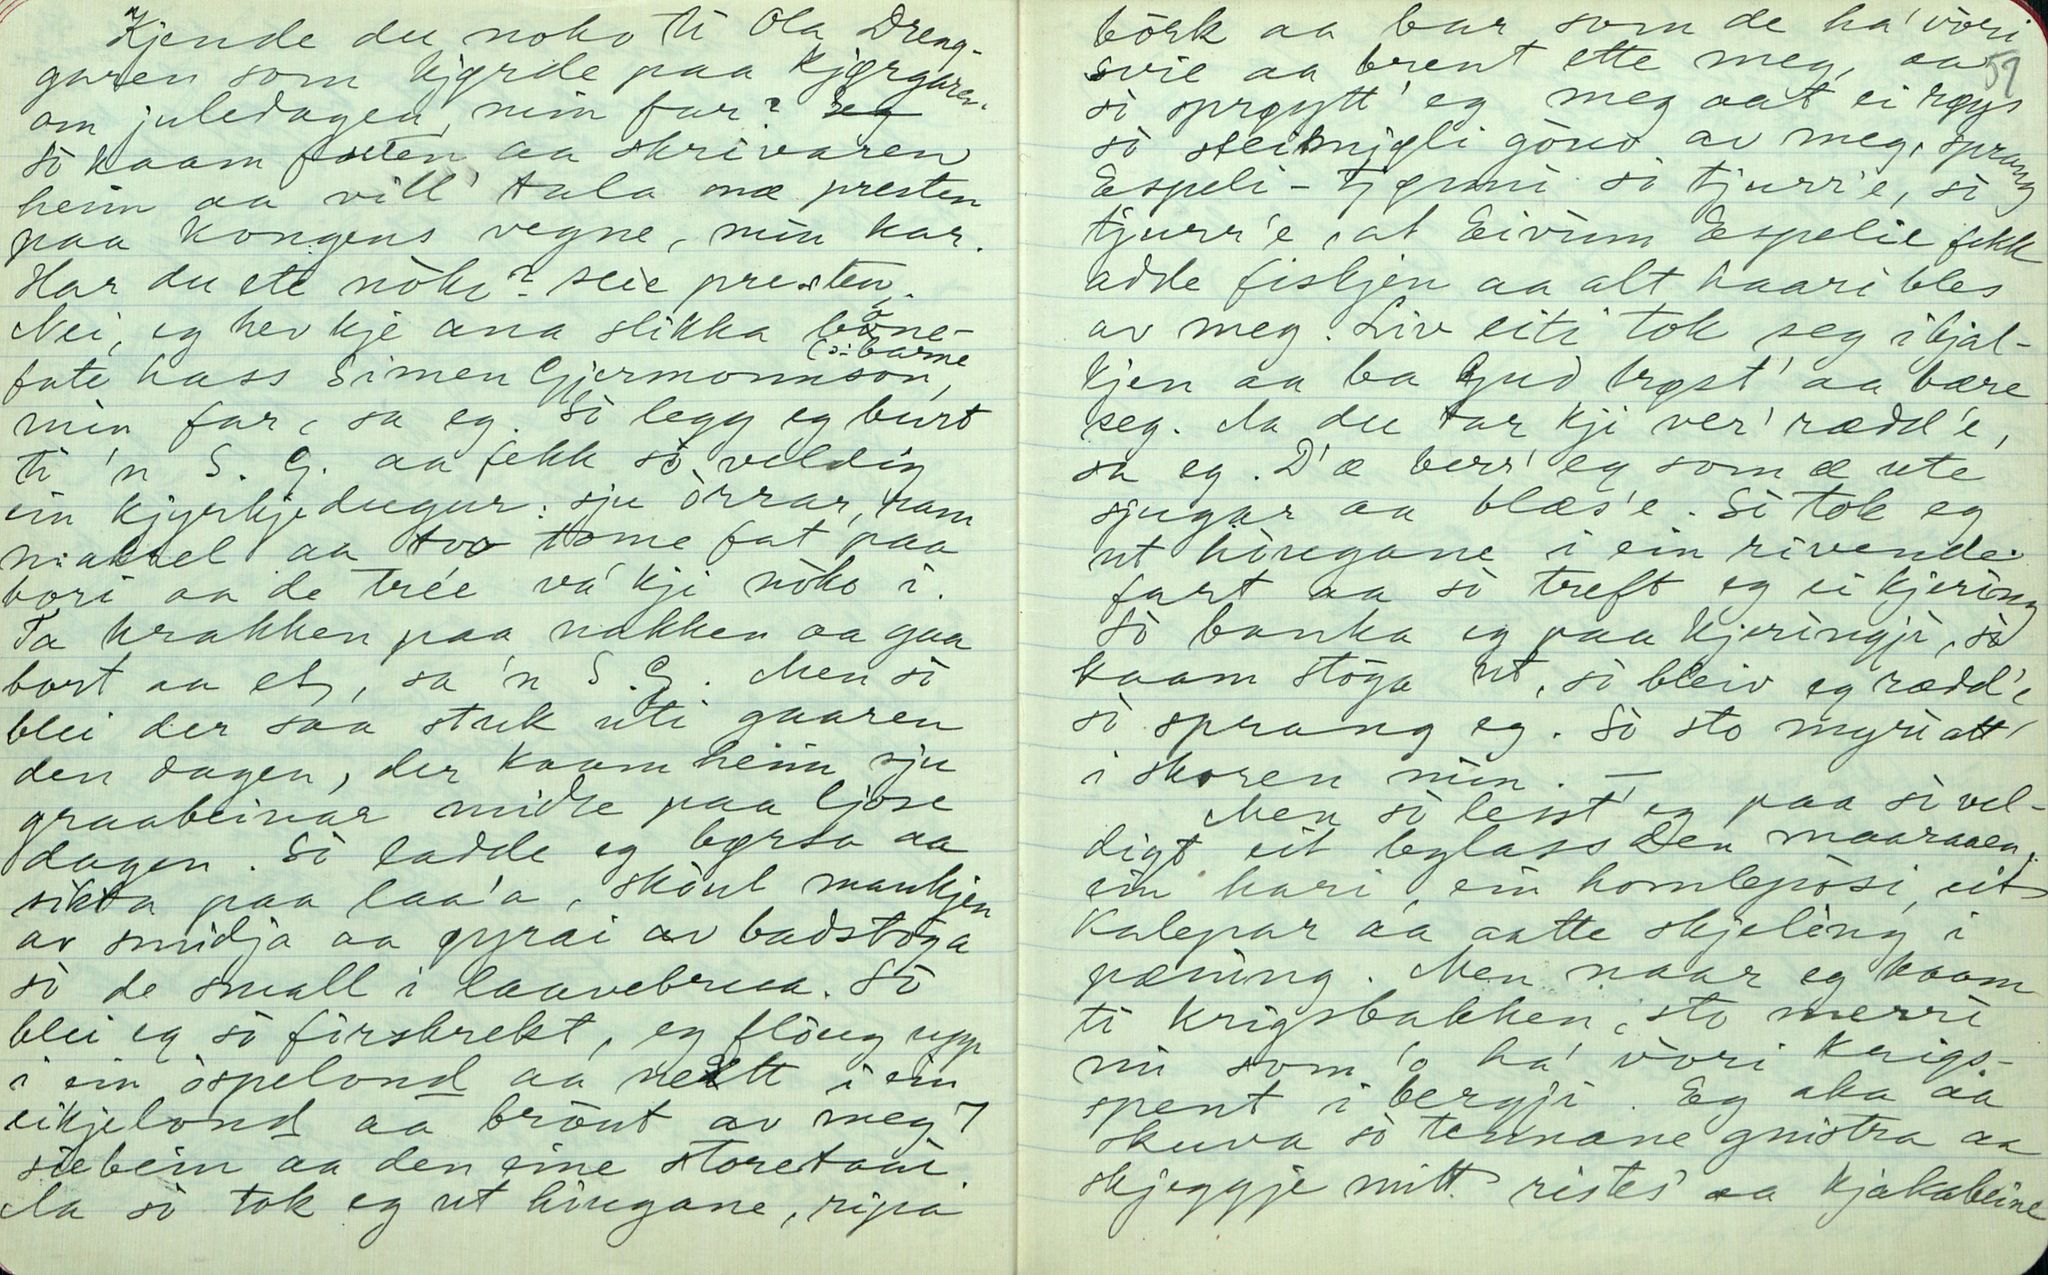 Kjende du noko ti Ola Dreng-
garen som kjørde paa kjørgaren
om juledagen, min far? Eg
Sò kaam futen aa skrivaren
heim aa vill' tala mæ presten
paa kongens vegne, min kar.
Har du ete nòko? seie presten.
Nei, eg hev kje ana slikka bòne-
(ɔ: barne
fate hass Simen Gjermonnson,
min far, sa eg. Sò legg eg burt
ti 'n S. G. aa fekk sò veldig
ein kjyrkjedugur: sju òrrar, fram
makrel aa tvo tome fat paa
bori aa de trée va' kji nòko i.
Ta krakken paa nakken aa gaa
bort aa et, sa 'n S. G. Men sò
blei der saa stuk uti gaaren
den dagen, der kaam heim sju
graabeinar midte paa ljose
dagen. Sò ladde eg børsa aa
sikta paa laa'a, skòut mankjen
av smidja aa pyrai av badstòga
sò de small i laavebrua. Sò
blei eg sò fòrskrekt, eg flòug upp
i ein òspelond aa nedtt i ein
eikjelond aa bròut av meg
siebein aa den eine storetaai
Aa sò tok eg ut hòugane, ripa
59
bòrk aa bar som de ha' vòri
svie aa brent ette meg, aa
sò sprøytt' eg meg aat ei røys
sò steinmjøli gòuv av meg, sprang
Espeli-tjønni sò tjurr'e, sò
tjurr'e, at Eivinn Espelie fekk
adde fiskjen aa alt haari bles
av meg. Liv eiti tok seg i kjal-
kjen aa ba Gud trøst' aa bære
seg. Aa du tar kji ver' rædd'e,
sa eg. D'æ berr' eg som æ ute
sjugar aa blæs'e. Sò tok eg
ut hòugane i ein rivende
fart aa sò treft eg ei kjering
Sò banka eg paa kjeringji, sò
kaam stòga ut, sò bleiv eg rædd'e
sò sprang eg. Sò sto myri att
i skoren min. —
Men sò lesst' eg paa sò vel-
digt eit bylass den maaraaen,
ein hari, ein homlepòsi, eit
kalvpar aa aatte skjeling i
pæning. Men naar eg kaam
ti Krigsbakken, sto merri
mi som 'o ha' vòri krigs-
spent i bergji. Eg aka aa
skuva sò tennane gnistra aa
skjeggje mitt ristes aa kjakabeine